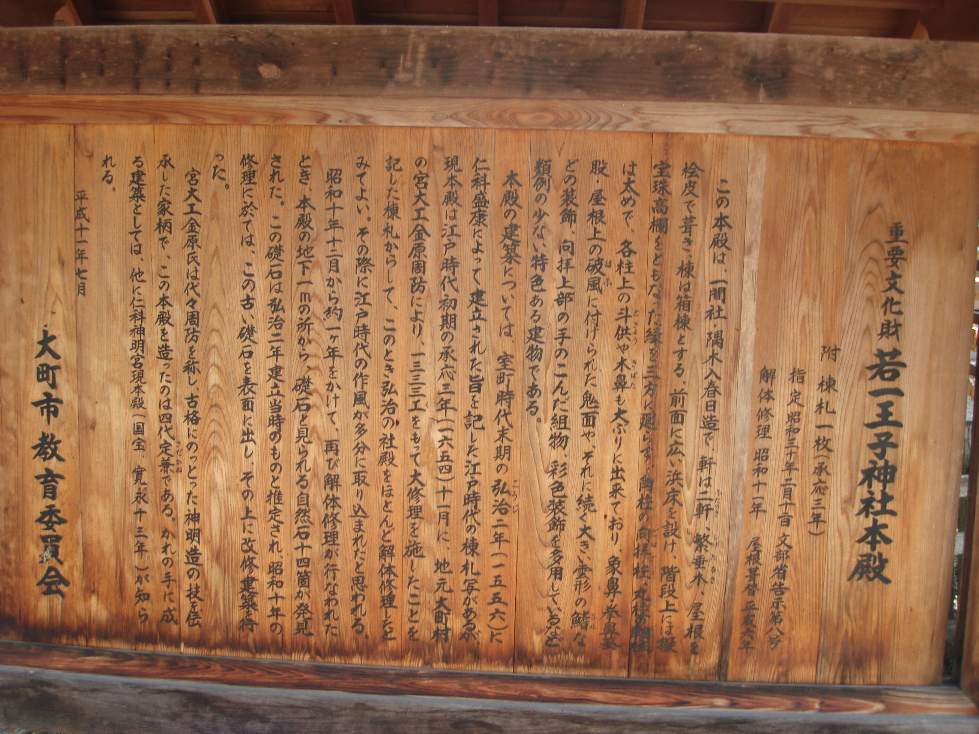 重要文化財 若一王子神社本殿
附 棟札一枚(承応三年)
指定昭和三十年二月十日 文部省告示第八号
解体修理 昭和十一年 屋根葺替 平成六年
この本殿は、一間社、隅木入春日造で、軒は二軒、繁垂木、屋根を
桧皮で葺き、棟は箱棟とする。前面に広い浜床を設け、階段上には擬
宝珠高欄をともなった縁を三方に廻らす。
は太めで、各柱上の斗供や木鼻も大ぶりに出来ており、象鼻、
股、屋根上の破風に付けられた鬼面や、それに続く大きい雲形の鰭な
どの装飾、向拝上部の手のこんだ組物、彩色装飾を多用しているなど
類例の少ない特色ある建物である。
本殿の建築については、室町時代末期の弘治二年(一五五六)に
仁科盛康によって建立された旨を記した江戸時代の棟札写があるが、
現本殿は江戸時代初期の承応三年(一六五四)十一月に、地元大町村
の宮大工金原周防により、一三三三工をもって大修理を施したことを
記した棟札からして、このとき弘治の社殿をほとんど解体修理したと
みてよい。その際に江戸時代の作風が多分に取り込まれたと思われる。
昭和十年十二月から約一ヶ年をかけて、再び解体修理が行なわれた
とき、本殿の地下一mの所から、礎石と見られる自然石十四箇が発見
された。この礎石は弘治二年建立当時のものと推定され、昭和十年の
修理に於ては、この古い礎石を表面に出し、その上に改修建築を行
った。
宮大工金原氏は代々周防を称し、古格にのっとった神明造の技を伝
承した家柄で、この本殿を造ったのは四代定兼である。かれの手に成
る建築としては、他に仁科神明宮現本殿(国宝、寛永十三年)が知ら
れる。
平成十一年七月
大町市教育委員会